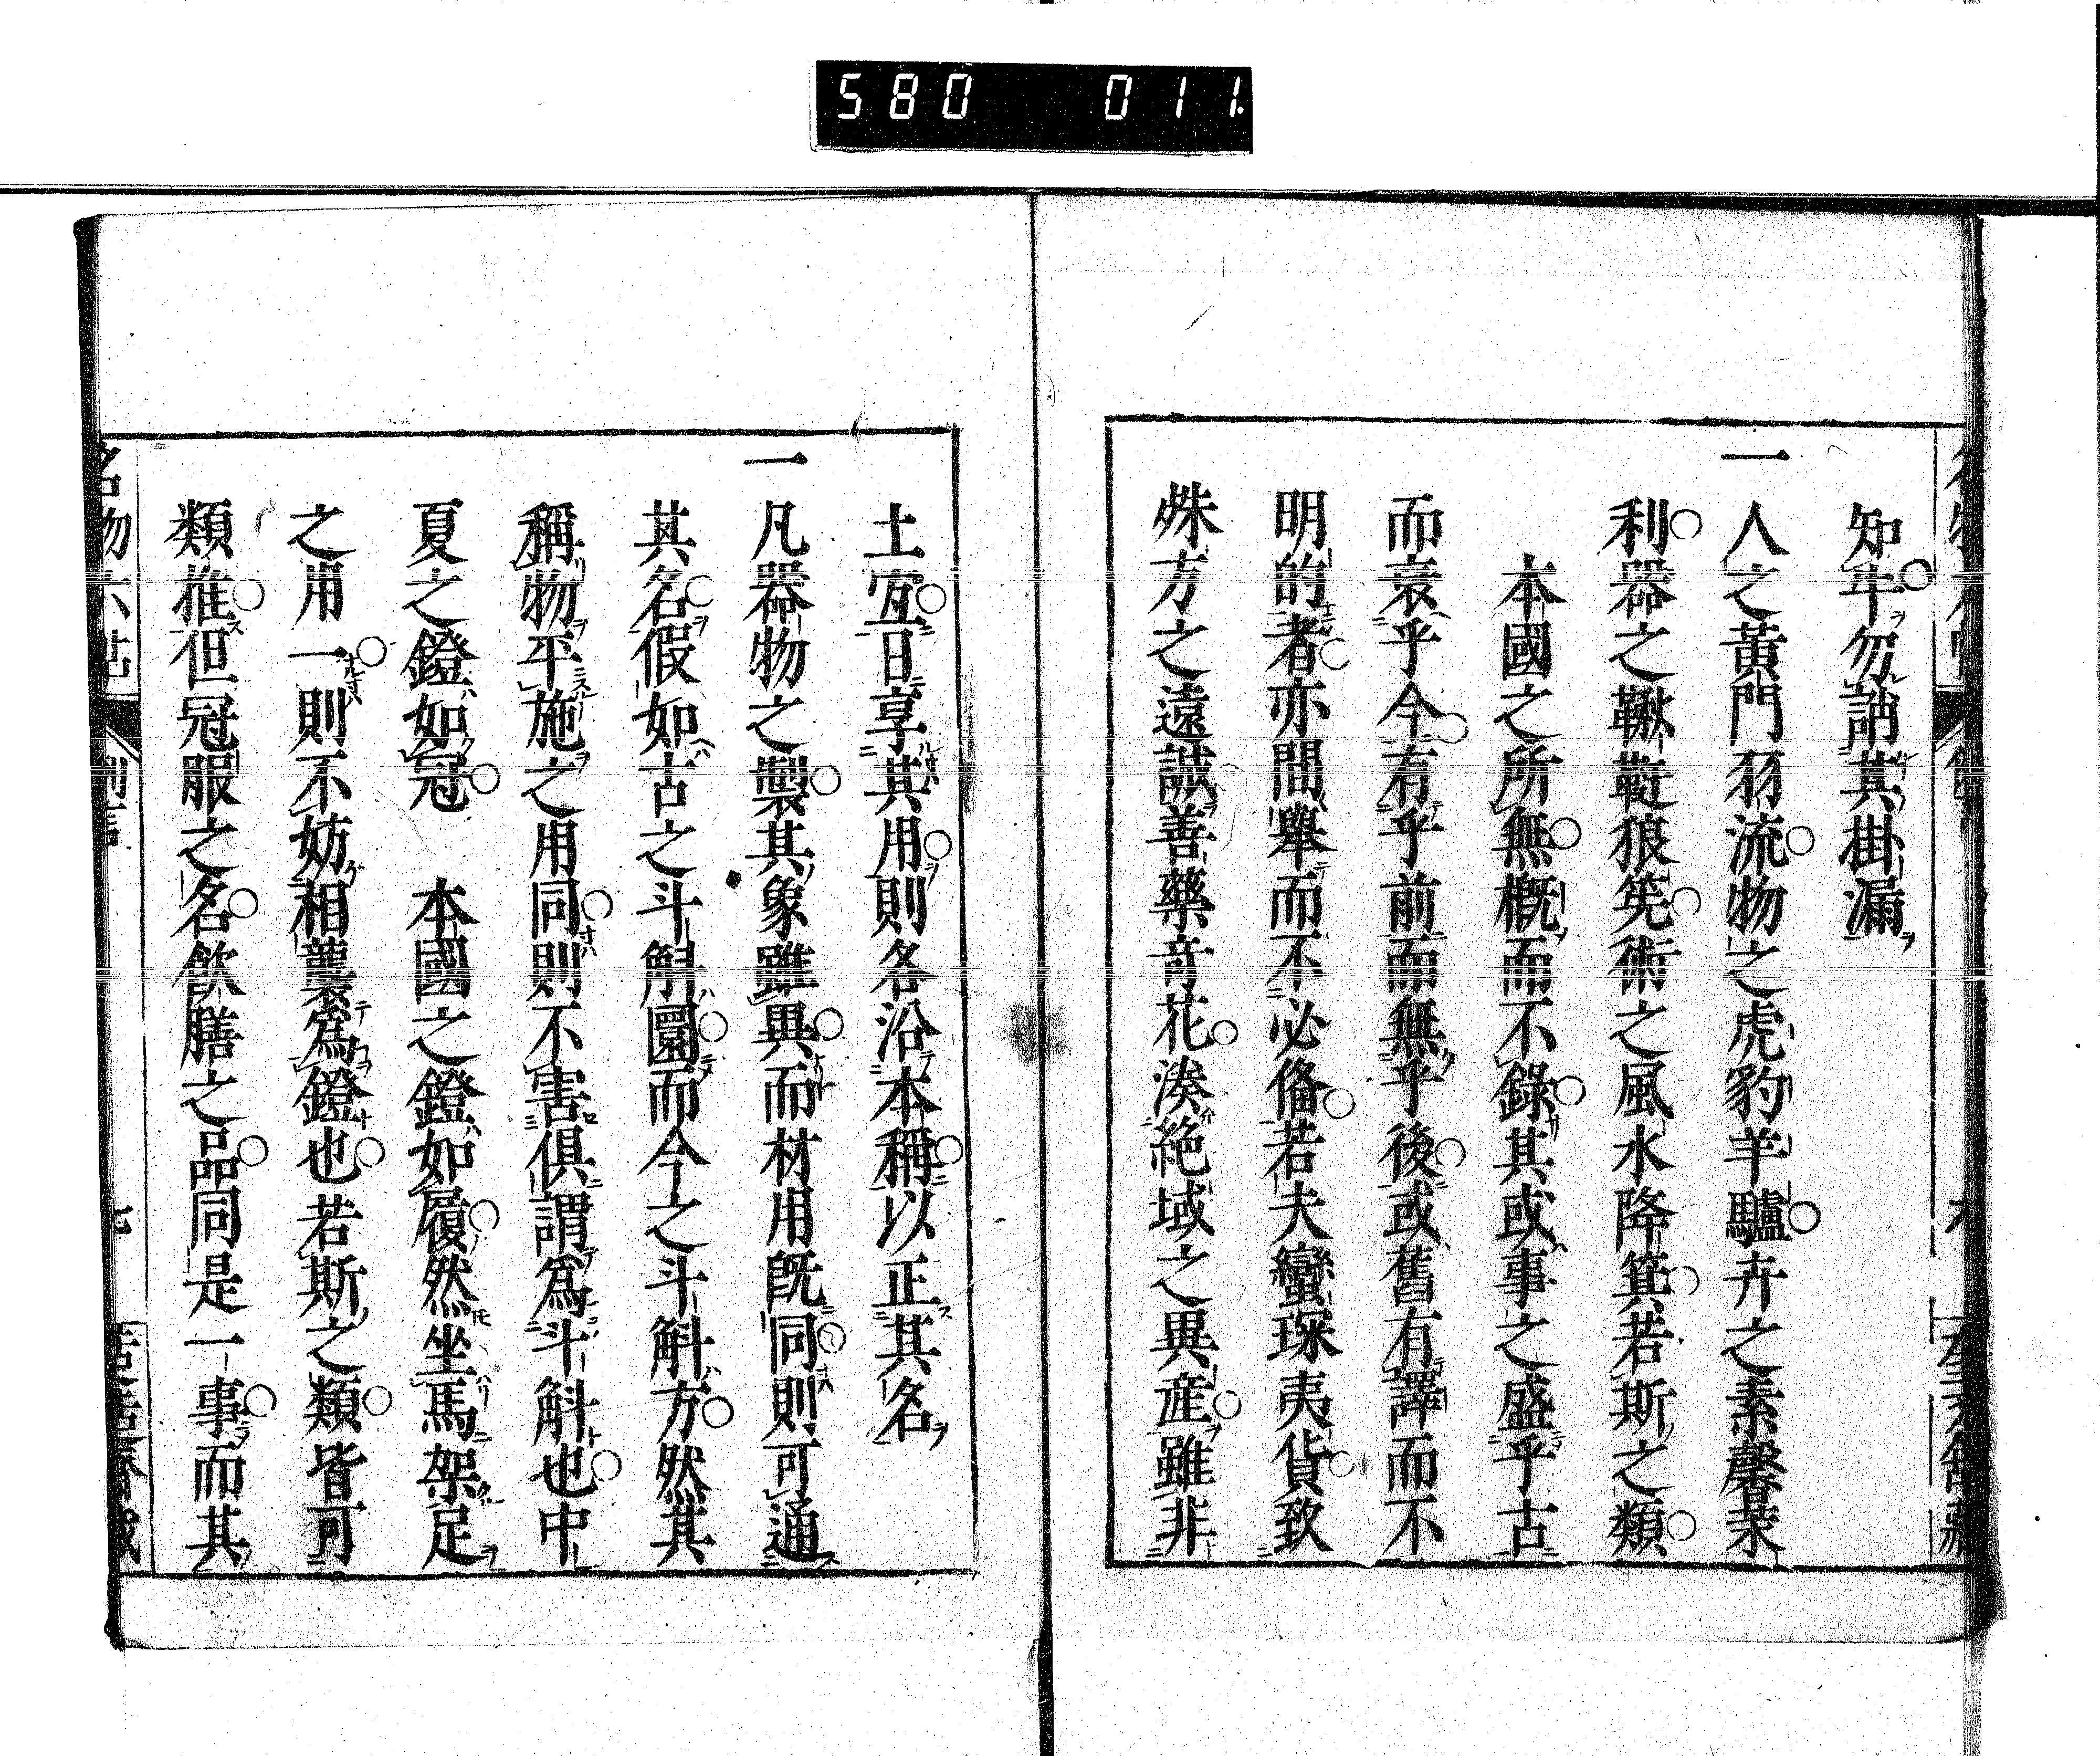 580 011
知年勿誚其掛漏
一人之黃門羽流物之虎豹羊驢卉之素馨茉
利器之鞦韆狼筅術之風水降箕若斯之類
本國之所無概而不錄其或事之盛乎古
而衰乎今有乎前而無乎後或舊有譯而不
明的者亦間擧而不必俻若夫蠻琛夷貨致
殊方之遠諴善藥竒花湊絶域之異産雖非
土宐日享其用則各沿本稱以正其名
一凡器物之製其象雖異而材用旣同則可通
其名假如古之斗斛圜而今之斗斛方然其
稱物平施之用同則不害俱謂爲斗斛也中
夏之鐙如冠 本國之鐙如履然坐馬架足
之用一則不妨相襲爲鐙也若斯之類皆可
類推但冠服之名飲膳之品同是一事而其
名物六